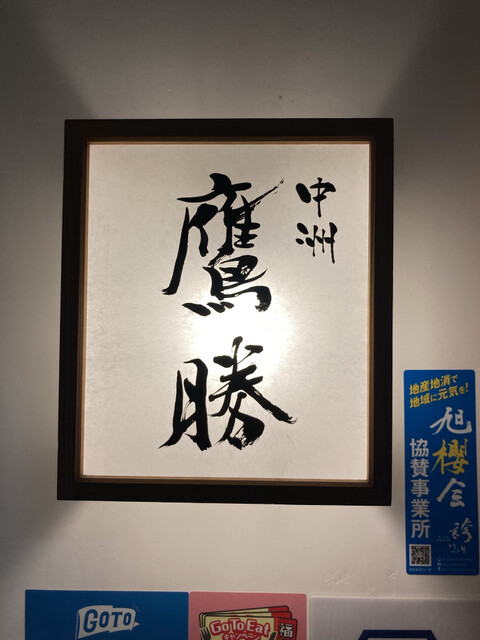 中洲
鷹勝
地産地消で
地域に元気を!
旭櫻会
協賛事業所
GOTO
GoToEat
キャンペーン
福